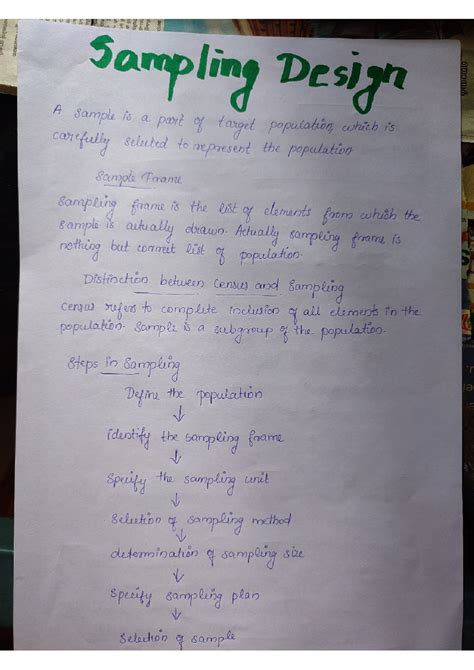 Sampling Design
A sample is a part of target population, which is
carefully selected to represent the population
Sample Frame
Sampling frame is the list of elements from which the
sample is actually drawn. Actually sampling frame is
nothing but correct list of population.
Distinction between Census and Sampling
Census refers to complete inclusion of all elements in the
population. Sample is a subgroup of the population.
Steps in Sampling
Define the population
↓
Identify the sampling frame
↓
Specify the sampling unit
↓
Selection of sampling method
↓
determination of sampling size
↓
Specify sampling plan
↓
Selection of sample